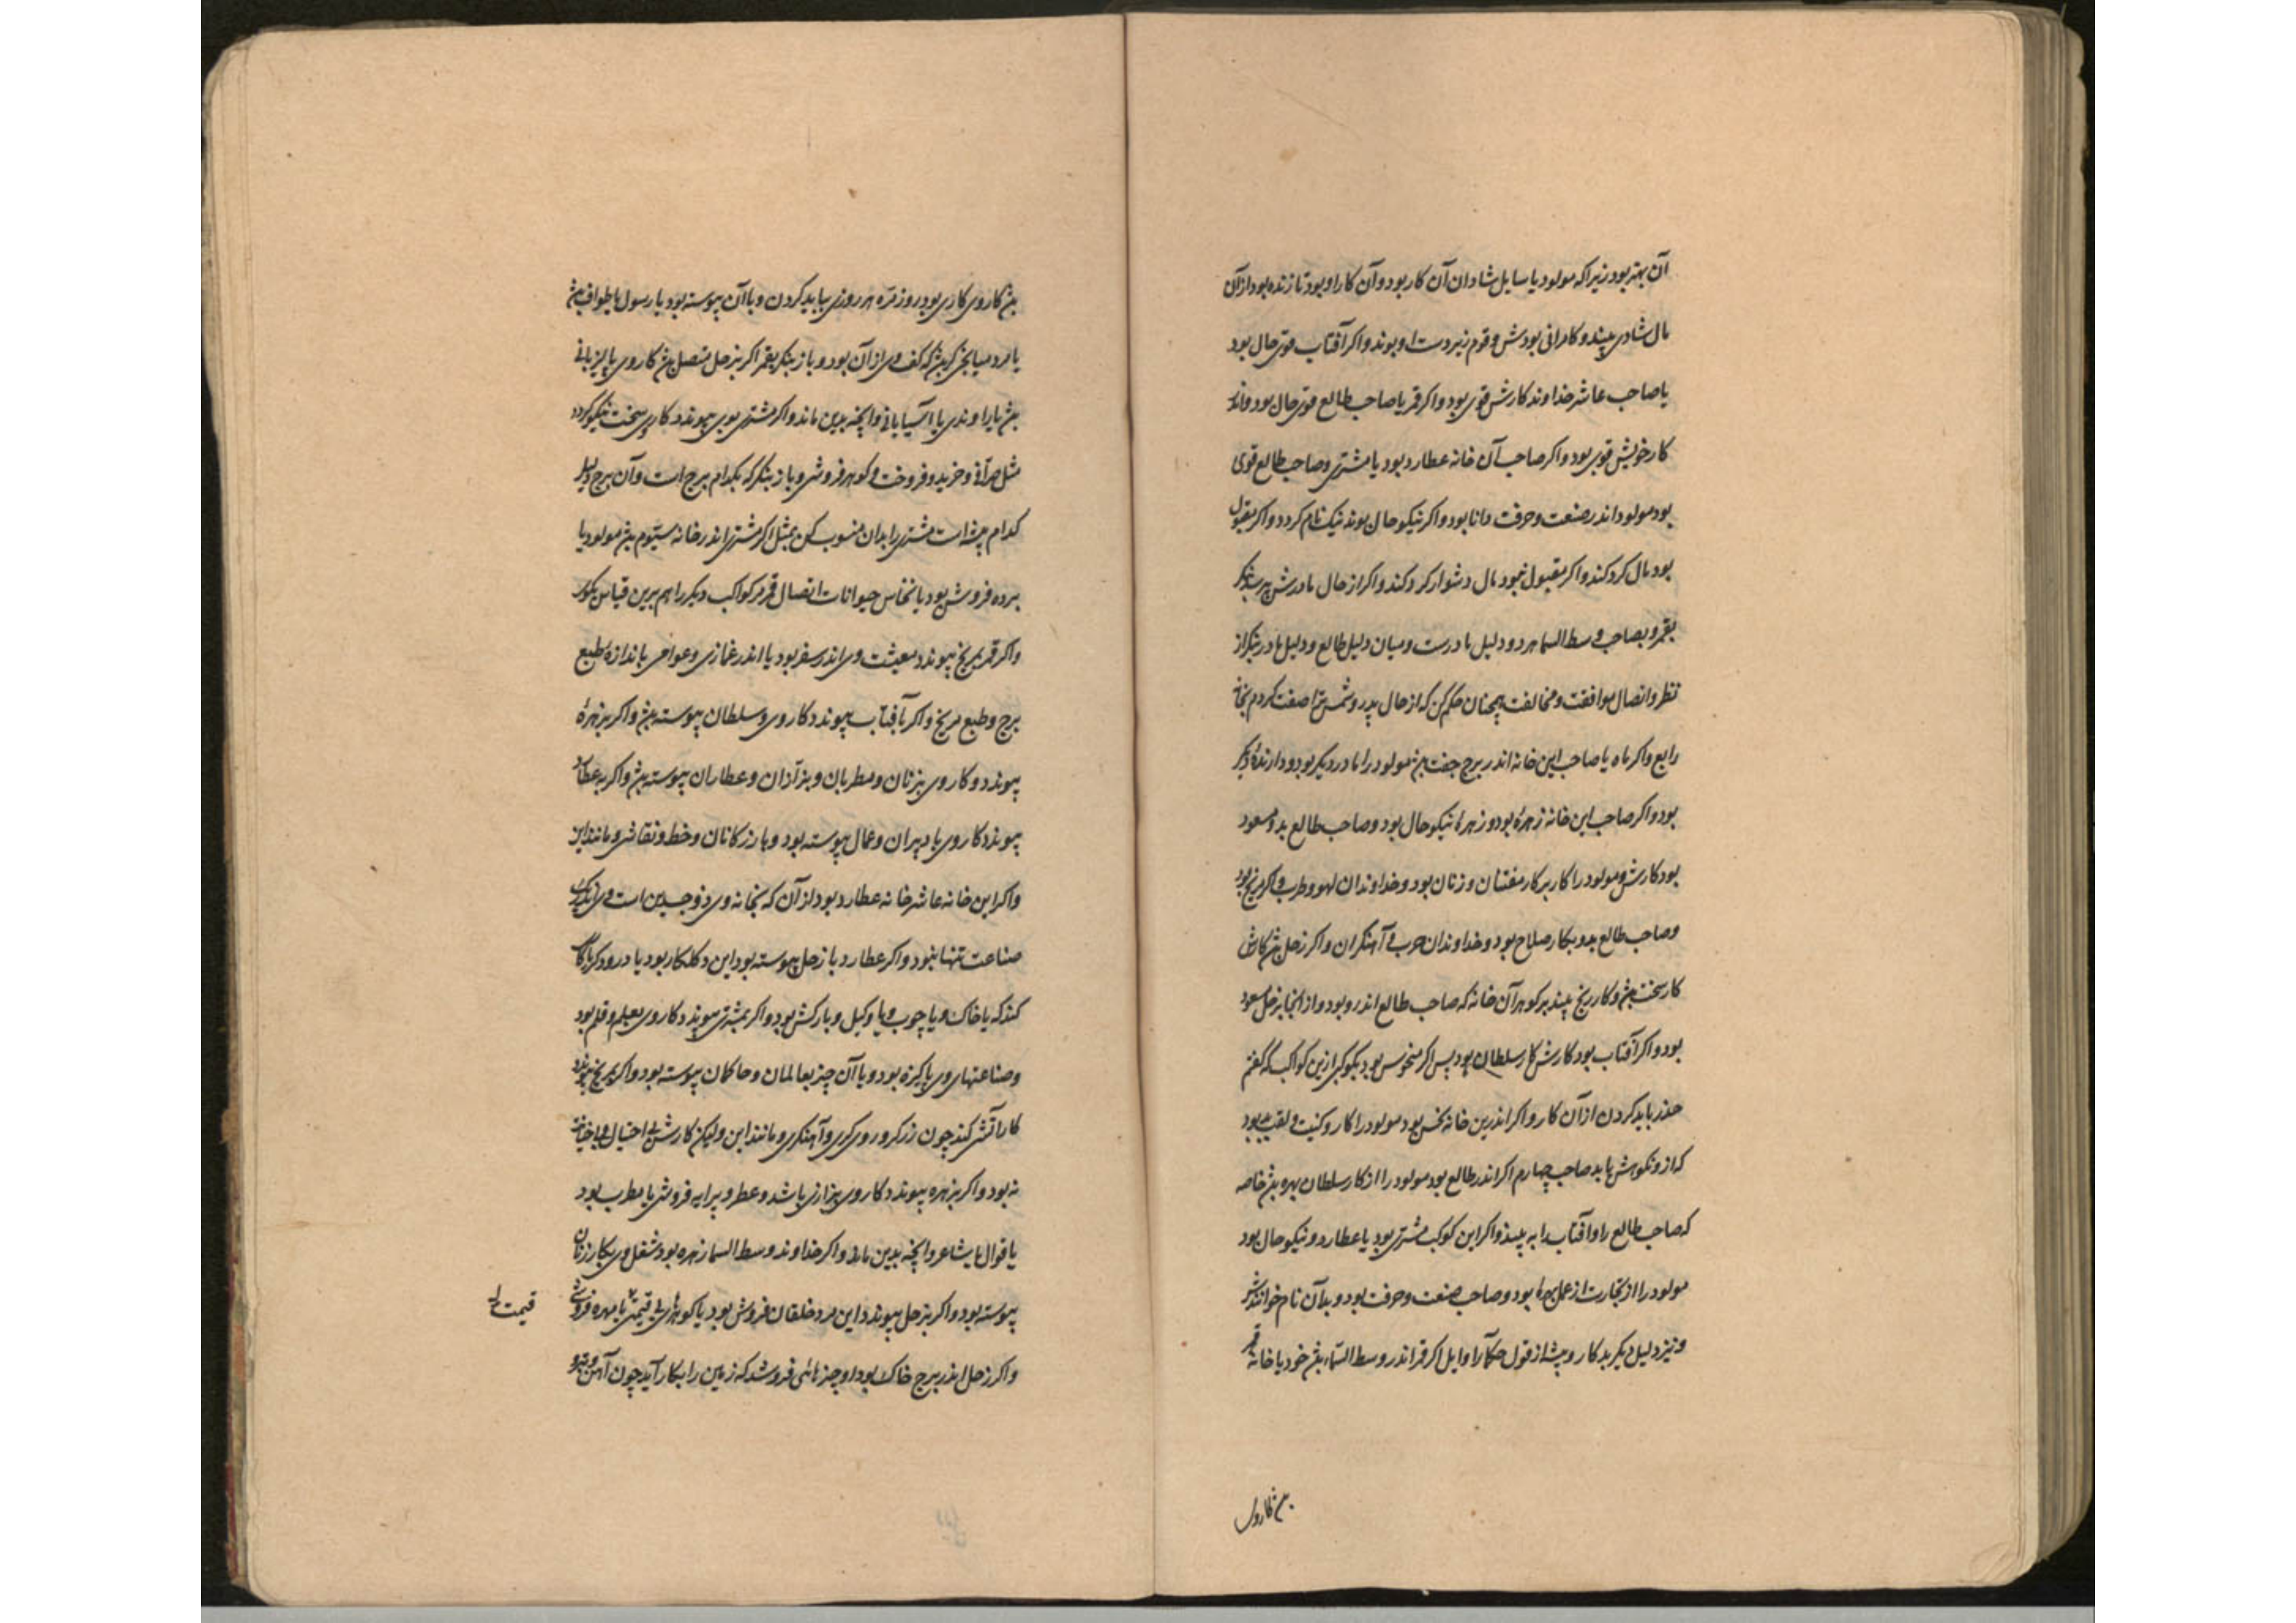 آن بهتر بود زیرا که مولود یا سایل شادان آن کار بود و آن کار او بود تا زنده بود از آن
مال شادی بیند و کامرانی بودش و قوم زیردست او بوند و اکر آفتاب قوی حال بود
یا صاحب عاشر خداوند کارش قوی بود و اکر قمر یا صاحب طالع قوی حال بود
کار خویش قوی بود و اکر صاحب آن خانه عطارد بود یا مشتری و صاحب طالع قوی
بود مولود اندر صنعت و حرفت دانا بود و اکر نیکو حال بوند نیک نام کردد و اکر مقبول
بود مال کرد کند و اکر مقبول نبود مال دشوار کرد کند و اکر از حال مادرش پرسند بنکر
بقمر و بصاحب وسط السما هر دو دلیل مادرست و میان دلیل طالع و دلیل مادر بنکر از
نظر و اتصال موافقت و مخالفت همچنان حکم کن که از حال پدر و شمس ترا صفت کردم بخانهٔ
رابع و اکر ماه یا صاحب این خانه اندر برج جفت بش مولود را مادر دیکر بود و دارندهٔ دیکر
بود و اکر صاحب این خانه زهره بود و زهره نیکو حال بود و صاحب طالع بدو مسعود
بود کارش و مولود را کار بر کار مفتنان و زنان بود و خداوندان لهو و طرب و اکر مریخ بود
و صاحب طالع بدو بکار صلاح بود و خداوندان حرب و آهنکران و اکر زحل بش کارش
کار سخت بش و کار رنج بیند بر کوهر آن خانه که صاحب طالع اندرو بود و از آنجا بزحل مسعود
بود و اکر آفتاب بود کارش کار سلطان بود پس اکر منحوس بود بکوکبی ازین کواکب که گفتم
حذر باید کردن از آن کار و اکر اندرین خانه نحس بود مولود را کار و کنیت و لقب بود
که ازو نکوهش یابد صاحب چهارم اکر اندر طالع بود مولود را از کار سلطان بهره بش خاصه
که صاحب طالع را و آفتاب را به بیند و اکر این کوکب مشتری بود یا عطارد و نیکو حال بود
مولود را از تجارت از عمل بهره بود و صاحب صنعت و حرفت بود و بدان نام خوانندش
و نیز دلیل دیکر بد کار و پیشه از قول حکماء اوایل اکر قمر اندر وسط السماء بش خود یا خانهٔ قمر
بش کار وی
بش کار وی کاری بود روزمره هر روزی بباید کردن و با آن پیوسته بود یا رسول یا طواف بش
یا مرد میانجی کر بش که کف وی از آن بود و باز بنکر بقمر اکر بزحل متصل بش کار وی پالیزبانی
بش یا راوندی یا آسیابانی و آنچه بدین ماند و اکر مشتری بوی پیوندد کار وی سخت نیکو کردد
مثل صرافی و خرید و فروخت و کوهر فروشی و باز بنکر که بکدام برج است و آن برج دلیل
کدام پیشه است مشتری را بدان منسوب کن بمثل اکر مشتری اندر خانه سیّوم بش مولود یا
برده فروش بود یا نخاس حیوانات اتصال قمر مر کواکب دیکر را هم برین قیاس بکوی
و اکر قمر بمریخ پیوندد معیشت وی اندر سفر بود یا اندر غمازی و عوانی باندازهٔ طبع
برج و طبع مریخ و اکر بآفتاب پیوندد کار وی و سلطان پیوسته بش و اکر بزهرهٔ
پیوندد و کار وی بزنان و مطربان و بزازان و عطاران پیوسته بش و اکر بعطارد
پیوندد کار وی با دبیران و عمال پیوسته بود و بازرکانان و خط و نقاشی و مانند این
و اکر این خانه عاشر خانه عطارد بود از آن که بخانه وی ذوجسدین است وی را یک
صناعت تنها نبود و اکر عطارد با زحل پیوسته بود این دکلکار بود یا درودکر یا کار
کند که با خاک و یا چوب و یا وکیل و بارکش بود و اکر بمشتری پیوندد کار وی بعلم و قلم بود
و صناعتهای وی پاکیزه بود و با آن چیز بعالمان و حاکمان پیوسته بود و اکر بمریخ پیوندد
کار آتش کند چون زرکر و روی کری و آهنکری و مانند این ولیکن کارش بی احتیال و بی خیانت
نه بود و اکر بزهره پیوندد کار وی بزازی باشد و عطر و پیرایه فروش یا مطرب بود
یا قوال یا شاعر و آنچه بدین ماند و اکر خداوند وسط السما زهره بود شغل وی بکار زنان
پیوسته بود و اکر بزحل پیوندد این مرد خلقان فروش بود یا کوهرهای بی قیمت یا مهره فروش
قیمت
و اکر زحل اندر برج خاک بود او چیزهائی فروشد که زمین را بکار آید چون آهن و